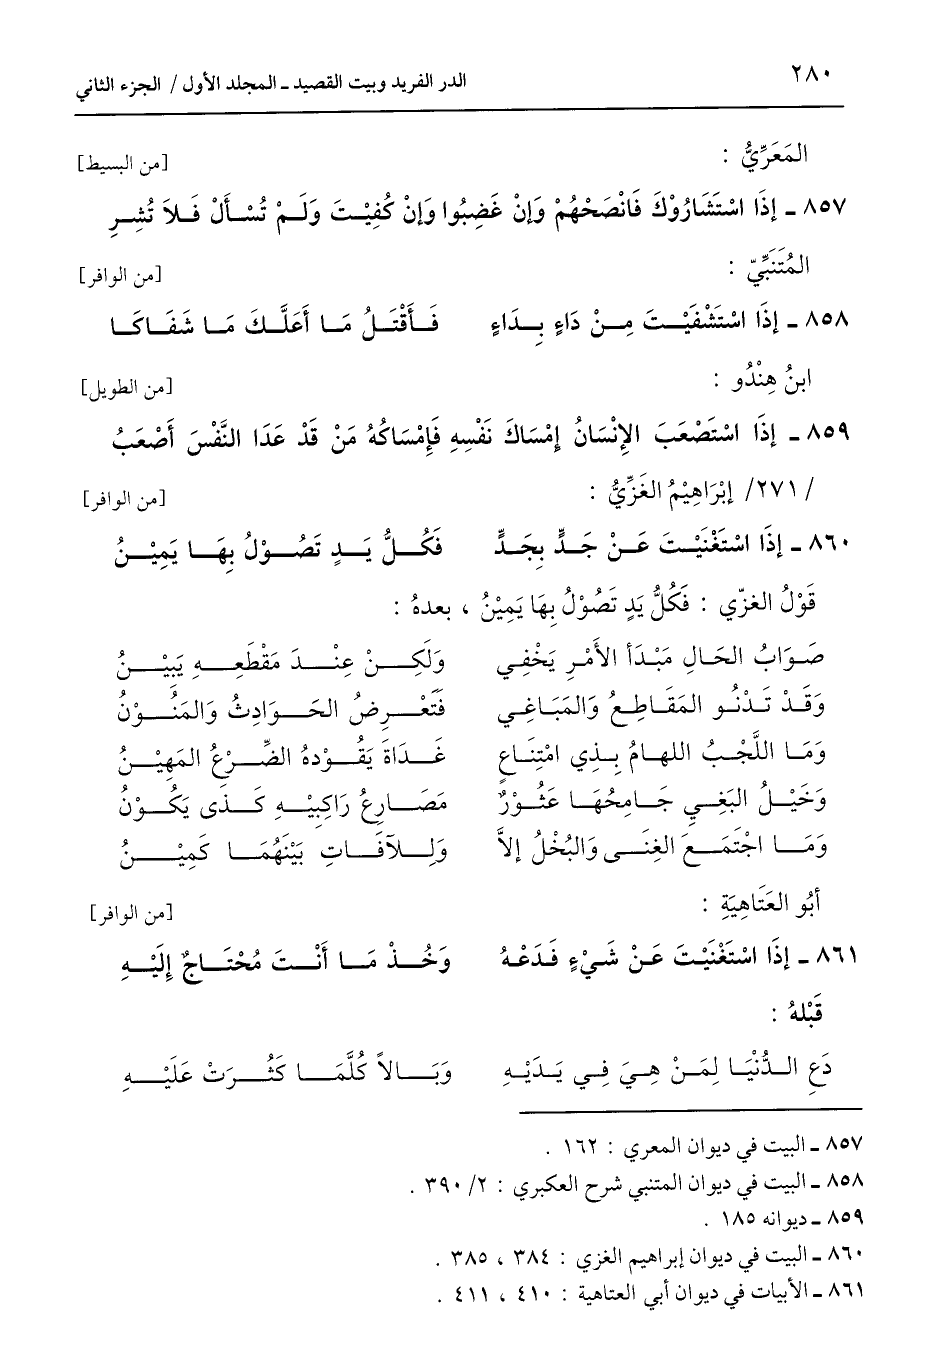 ٢٨٠ الدر الفريد وبيت القصيد ـ المجلد الأول / الجزء الثاني
المَعَرِّيُّ : [من البسيط]
٨٥٧ ـ إِذَا اسْتَشَارُوْكَ فَانْصَحْهُمْ وَإِنْ غَضِبُوا وَإِنْ كُفِيْتَ وَلَمْ تُسْأَلْ فَلاَ تُشِرِ
المُتَنَبِّيّ : [من الوافر]
٨٥٨ ـ إِذَا اسْتَشْفَيْتَ مِنْ دَاءٍ بِدَاءٍ فَأَقْتَلُ مَا أَعَلَّكَ مَا شَفَاكَا
ابنُ هِنْدُو : [من الطويل]
٨٥٩ ـ إِذَا اسْتَصْعَبَ الإِنْسَانُ إِمْسَاكَ نَفْسِهِ فَإِمْسَاكُهُ مَنْ قَدْ عَدَا النَّفْسَ أَصْعَبُ
/ ٢٧١/ إِبْرَاهِيْمُ الغَزِّيُّ : [من الوافر]
٨٦٠ ـ إِذَا اسْتَغْنَيْتَ عَنْ جَدٍّ بِجَدٍّ فَكُلُّ يَدٍ تَصُوْلُ بِهَا يَمِيْنُ
قَوْلُ الغزّي : فَكُلُّ يَدٍ تَصُوْلُ بِهَا يَمِيْنُ ، بعدهُ :
صَوَابُ الحَالِ مَبْدَأَ الأَمْرِ يَخْفِي وَلَكِنْ عِنْدَ مَقْطَعِهِ يَبِيْنُ
وَقَدْ تَدْنُو المَقَاطِعُ وَالمَبَاغِي فَتَعْرِضُ الحَوَادِثُ وَالمَنُوْنُ
وَمَا اللَّجْبُ اللهامُ بِذِي امْتِنَاعٍ غَدَاةَ يَقُوْدهُ الضِّرْعُ المَهِيْنُ
وَخَيْلُ البَغْيِ جَامِحُهَا عَثُوْرٌ مَصَارِعُ رَاكِبِيْهِ كَذَى يَكُوْنُ
وَمَا اجْتَمَعَ الغِنَى وَالبُخْلُ إلاَّ وَلِلآفَاتِ بَيْنَهُمَا كَمِيْنُ
أَبُو العَتَاهِيَةِ : [من الوافر]
٨٦١ ـ إِذَا اسْتَغْنَيْتَ عَنْ شَيْءٍ فَدَعْهُ وَخُذْ مَا أَنْتَ مُحْتَاجٌ إِلَيْهِ
قَبْلهُ :
دَعِ الدُّنْيَا لِمَنْ هِيَ فِي يَدَيْهِ وَبَالاً كُلَّمَا كَثُرَتْ عَلَيْهِ
٨٥٧ ـ البيت في ديوان المعري : ١٦٢ .
٨٥٨ ـ البيت في ديوان المتنبي شرح العكبري : ٢/ ٣٩٠ .
٨٥٩ ـ ديوانه ١٨٥ .
٨٦٠ ـ البيت في ديوان إبراهيم الغزي : ٣٨٤ ، ٣٨٥ .
٨٦١ ـ الأبيات في ديوان أبي العتاهية : ٤١٠ ، ٤١١ .